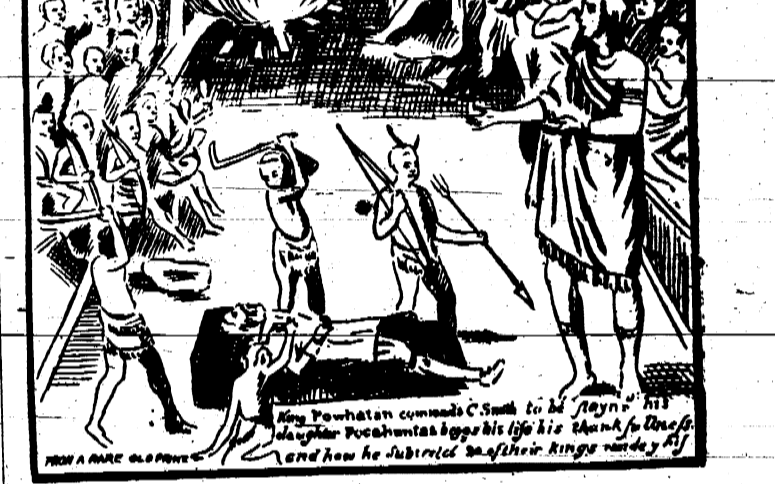 King Powhatan commands C. Smith to be slayne his
daughter Pocahontas beggs his life his thankfullness
and how he subiected of their kings
FROM A RARE OLD PRINT